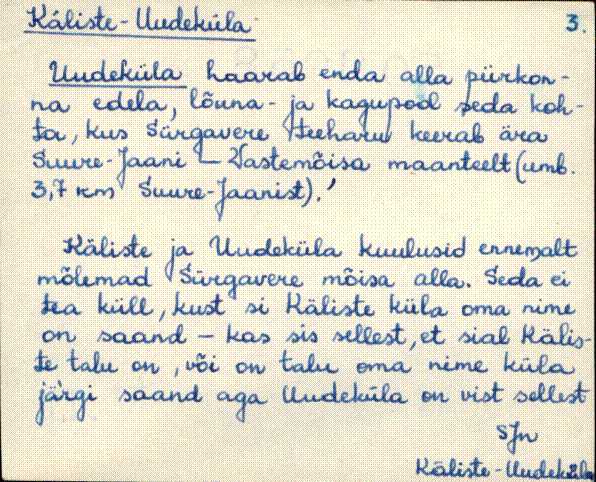 Käliste-Uudeküla
3.
Uudeküla haarab enda alla piirkon-
na edela, lõuna- ja kagupool seda koh-
ta, kus Sürgavere teeharu keerab ära
Suure-Jaani – Vastemõisa maanteelt (umb.
3,7 km Suure-Jaanist).'
Käliste ja Uudeküla kuulusid ennemalt
mõlemad Sürgavere mõisa alla. Seda ei
tea küll, kust si Käliste küla oma nime
on saand – kas sis sellest, et sial Kälis-
te talu on, või on talu oma nime küla
järgi saand aga Uudeküla on vist sellest
SJn
Käliste-Uudeküla